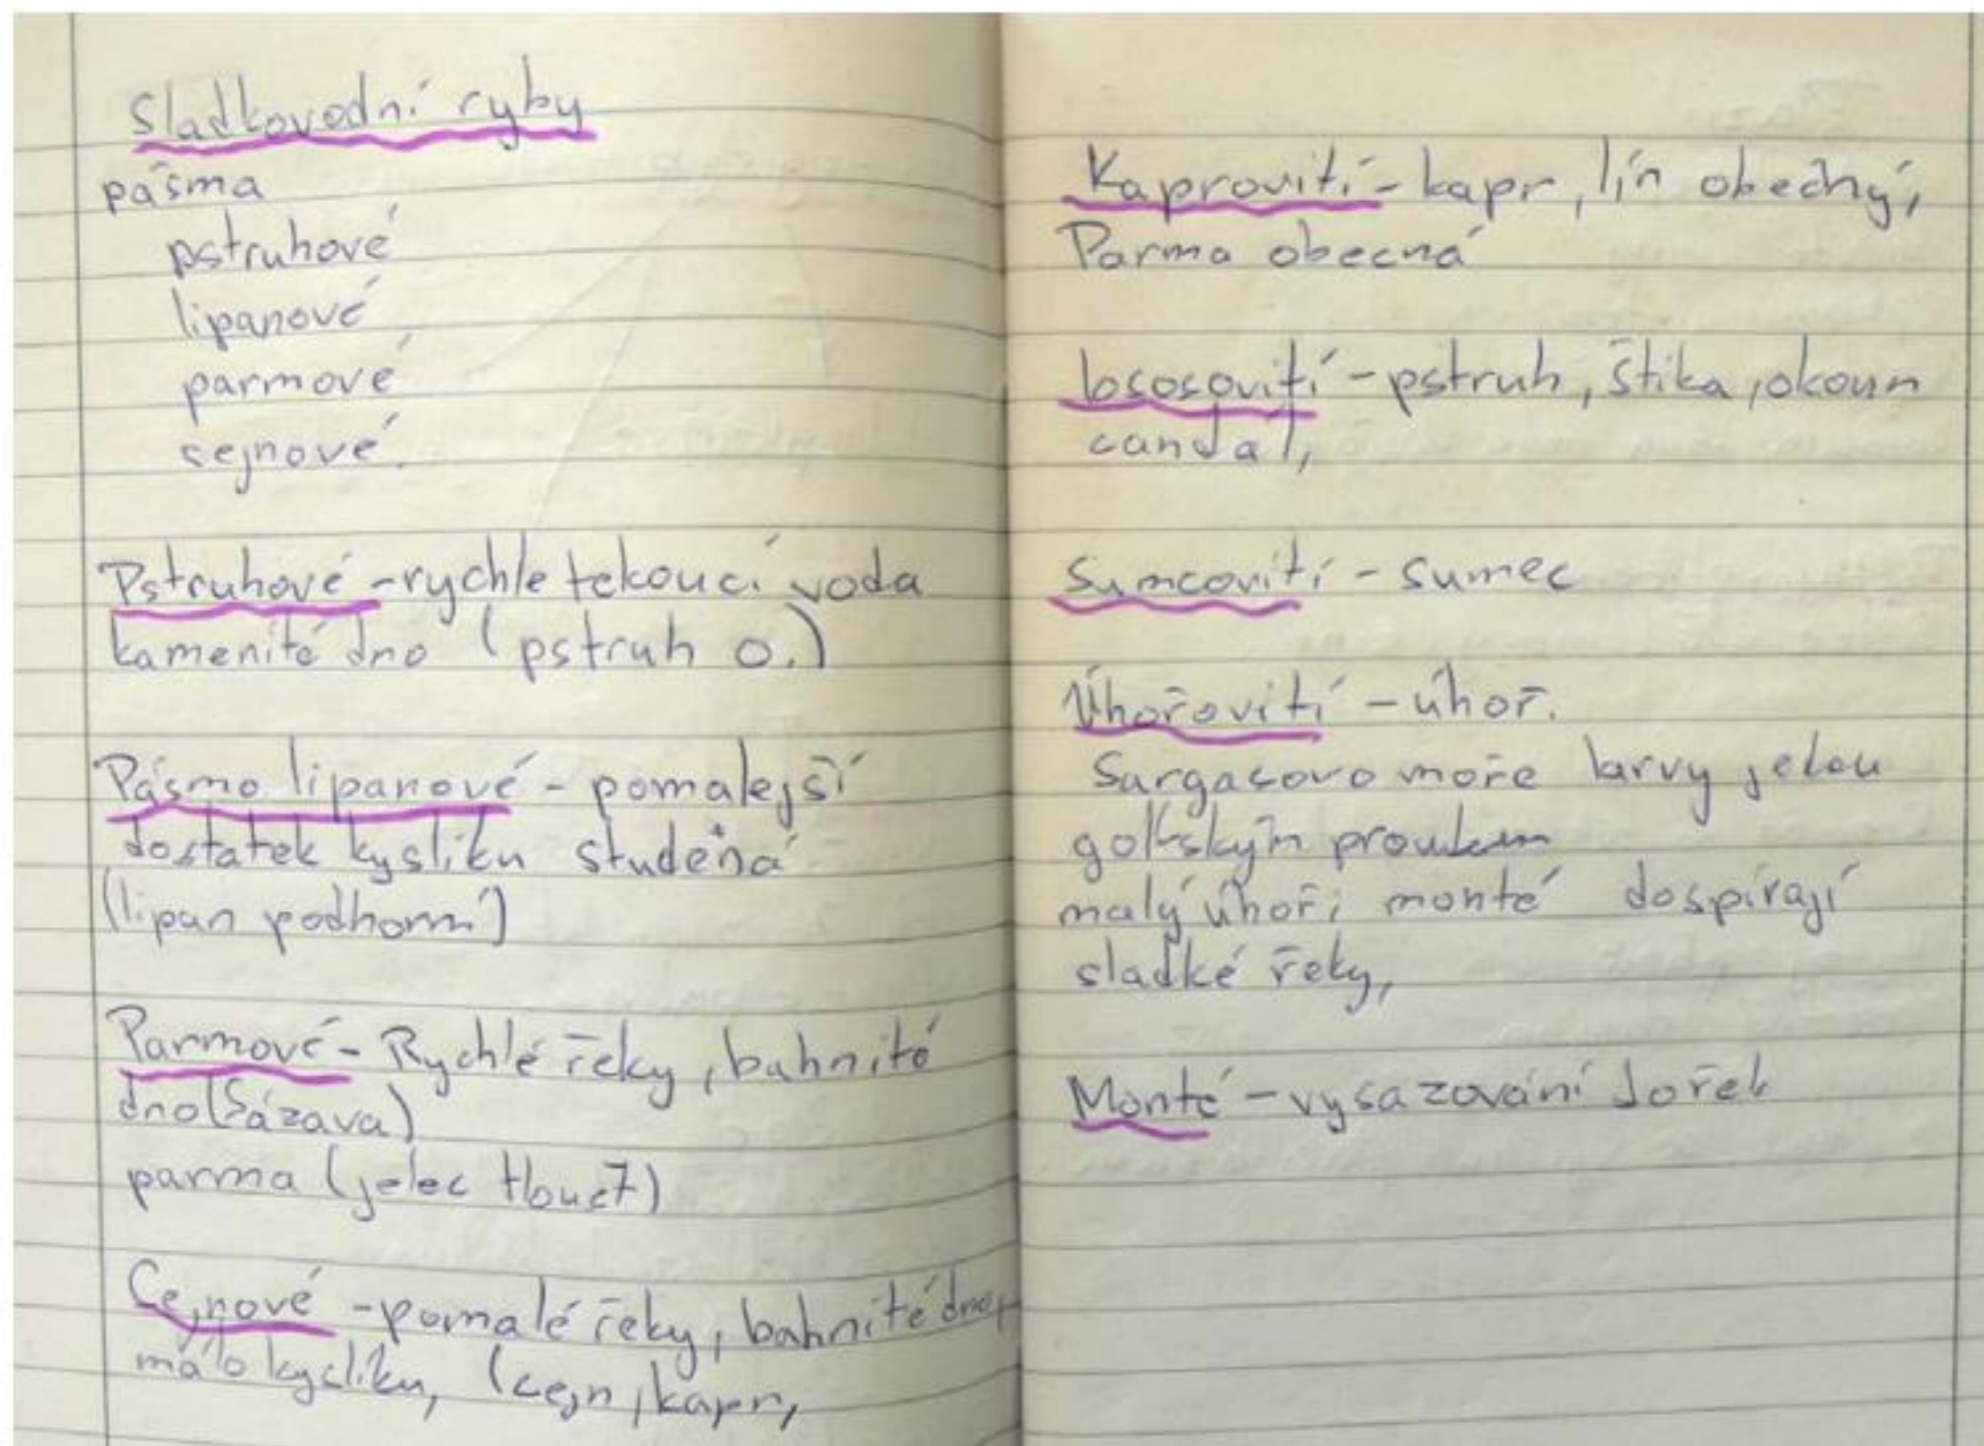 Sladkovodní ryby
pásma
pstruhové
lipanové
parmové
cejnové
Pstruhové - rychle tekoucí voda
kamenité dno (pstruh o.)
Pásmo lipanové - pomalejší
dostatek kyslíku studená
(lipan podhorní)
Parmové - Rychlé řeky, bahnité
dno (Sázava)
parma (jelec tloušť)
Cejnové - pomalé řeky, bahnité dno,
málo kyslíku, (cejn, kapr,
Kaprovití - kapr, lín obecný,
Parma obecná
lososovití - pstruh, štika, okoun
candát,
Sumcovití - sumec
Úhořovití - úhoř.
Sargasovo moře larvy jedou
golfským proudem
malý úhoři monté dospívají
sladké řeky,
Monté - vysazování do řek